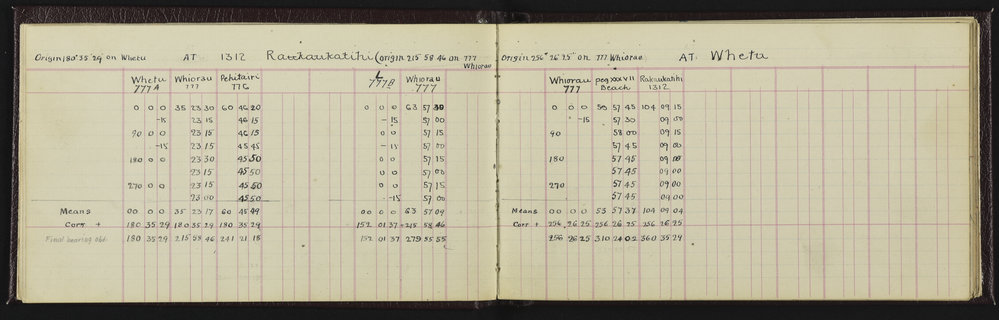 Origin 180° 35' 29" on Whetu AT 1312 Raukaukatihi (origin 215 58 46 on 777 Whiorau
Whetu Whiorau Pekitairi L Whiorau
777A 777 776 777B 777
0 0 0 35 23 30 60 46 20 0 0 0 63 57 30
-15 23 15 46 15 -15 57 00
90 0 0 23 15 46 15 0 0 57 15
-15 23 15 45 45 -15 57 00
180 0 0 23 30 45 50 0 0 57 15
23 15 45 50 0 0 57 00
270 0 0 23 15 45 50 0 0 57 15
23 00 45 50 -15 57 00
Means 00 0 0 35 23 17 60 45 49 00 0 0 63 57 09
Corn + 180 35 29 180 35 29 180 35 29 152 01 37 +215 58 46
Final bearing obd. 180 35 29 215 58 46 241 21 18 152 01 37 279 55 55
Origin 256° 26' 25" on 777 Whiorau AT Whetu
Whiorau peg XXXVII Rakaukatihi
777 Beach 1312
0 0 0 53 57 45 104 09 15
-15 57 30 09 00
90 58 00 09 15
57 45 09 00
180 57 45 09 00
57 45 09 00
270 57 45 09 00
57 45 09 00
Means 00 0 0 53 57 37 104 09 04
Corr + 256 26 25 256 26 25 256 26 25
256 26 25 310 24 02 360 35 29